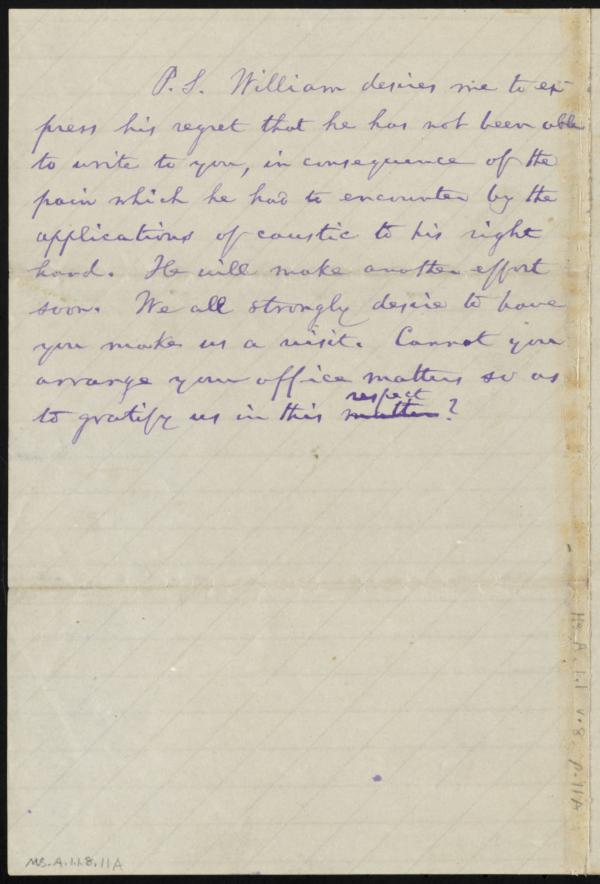 P.S. William desires me to ex-
press his regret that he has not been able
to write to you, in consequence of the
pain which he had to encounter by the
applications of caustic to his right
hand. He will make another effort
soon. We all strongly desire to have
you make us a visit. Cannot you
arrange your office matters so as
respect
to gratify us in this matter?
Ms. A. 1.1 v.8 p.11A
MS.A.1.1.8.11A